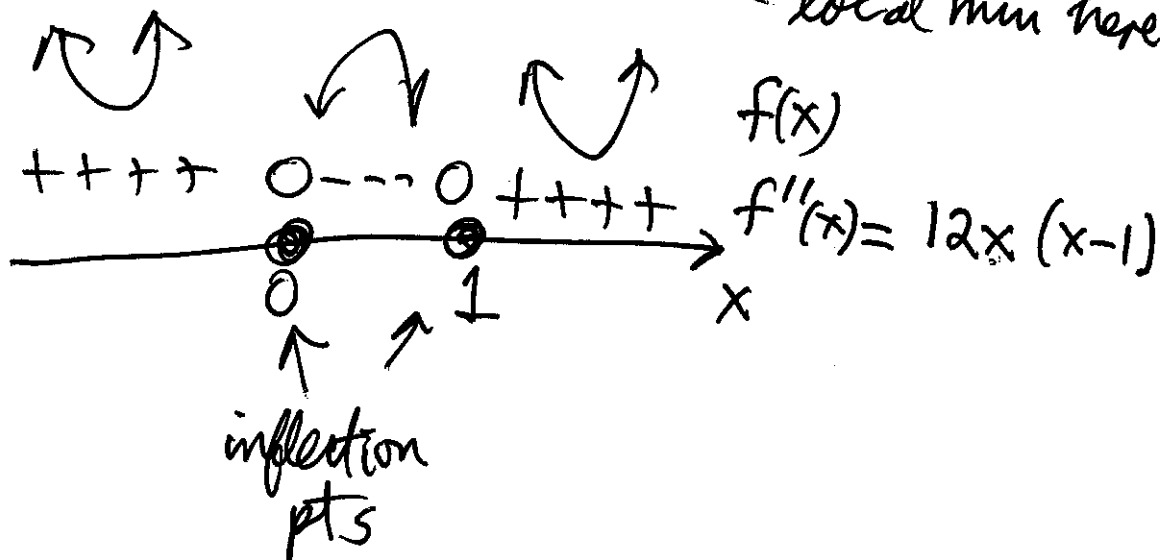 local min here
f(x)
++++ 0 --- 0 ++++ f''(x) = 12x (x-1)
0 1 x
inflection
pts